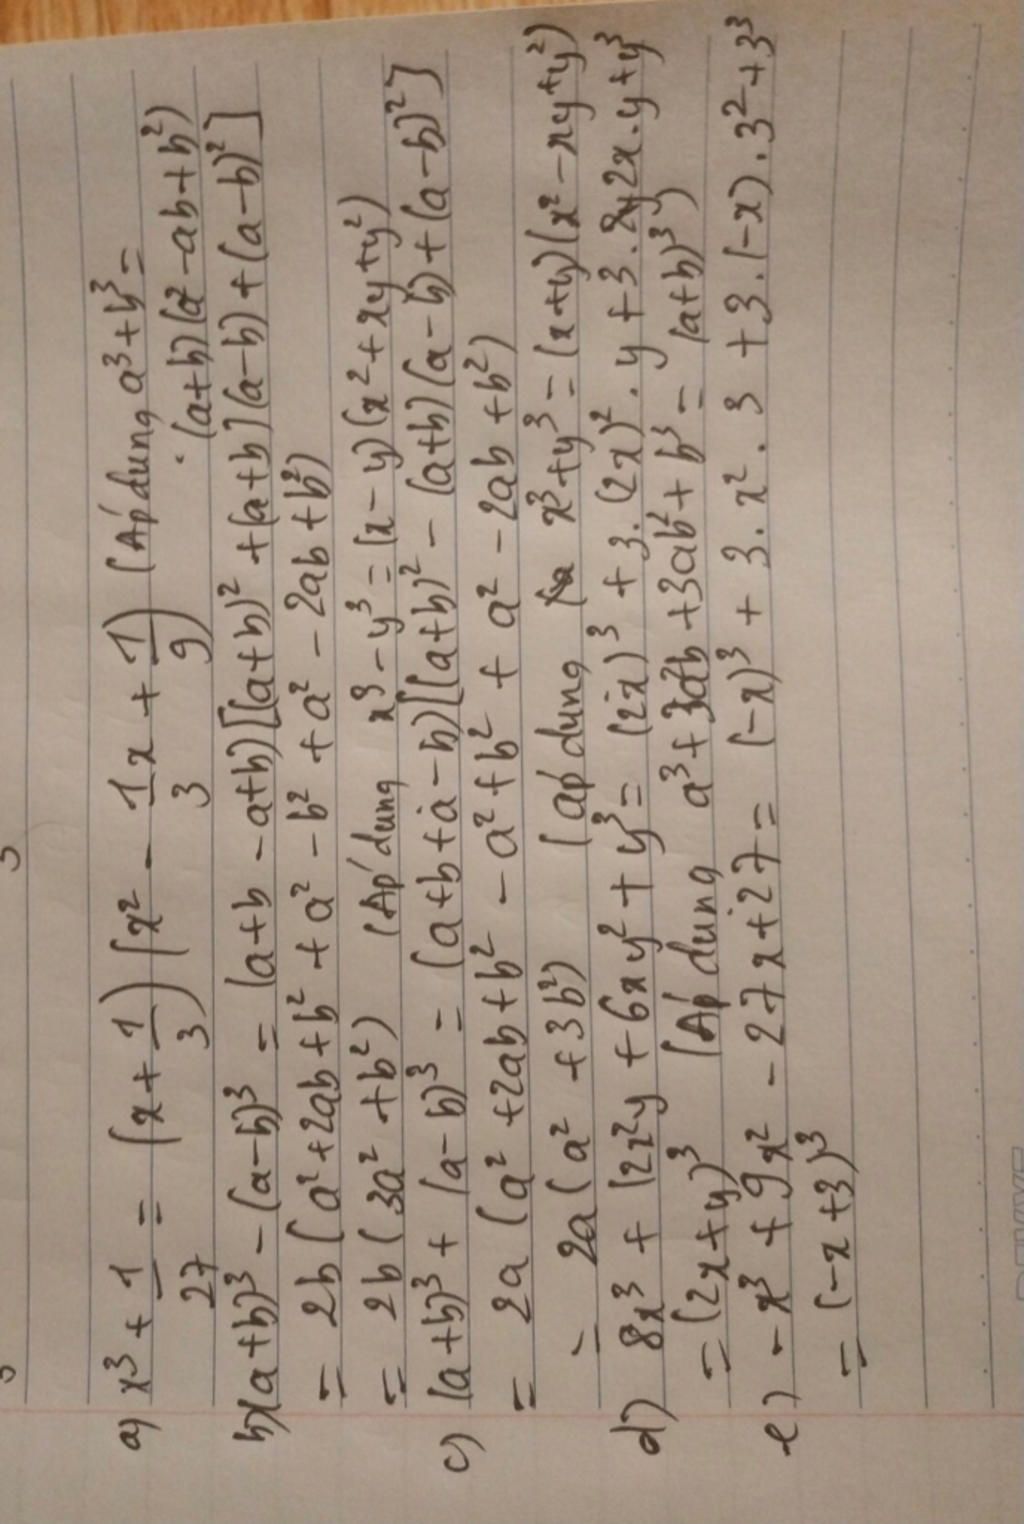 a) x³ + 1/27 = (x + 1/3)(x² - 1/3 x + 1/9) (Áp dụng a³ + b³ =
. (a+b)(a² - ab + b²)
b) (a+b)³ - (a-b)³ = (a+b - a+b)[(a+b)² + (a+b](a-b) + (a-b)²]
= 2b(a² + 2ab + b² + a² - b² + a² - 2ab + b²)
= 2b(3a² + b²) (Áp dụng x³ - y³ = (x-y)(x² + xy + y²)
c) (a+b)³ + (a-b)³ = (a+b+a-b)[(a+b)² - (a+b)(a-b) + (a-b)²]
= 2a(a² + 2ab + b² - a² + b² + a² - 2ab + b²)
= 2a(a² + 3b²) (áp dụng x³ + y³ = (x+y)(x² - xy + y²)
d) 8x³ + 12x²y + 6xy² + y³ = (2x)³ + 3.(2x)².y + 3.2x.y + y³
= (2x+y)³ (Áp dụng a³ + 3a²b + 3ab² + b³ = (a+b)³)
e) -x³ + 9x² - 27x + 27 = (-x)³ + 3.x².3 + 3.(-x).3² + 3³
= (-x+3)³